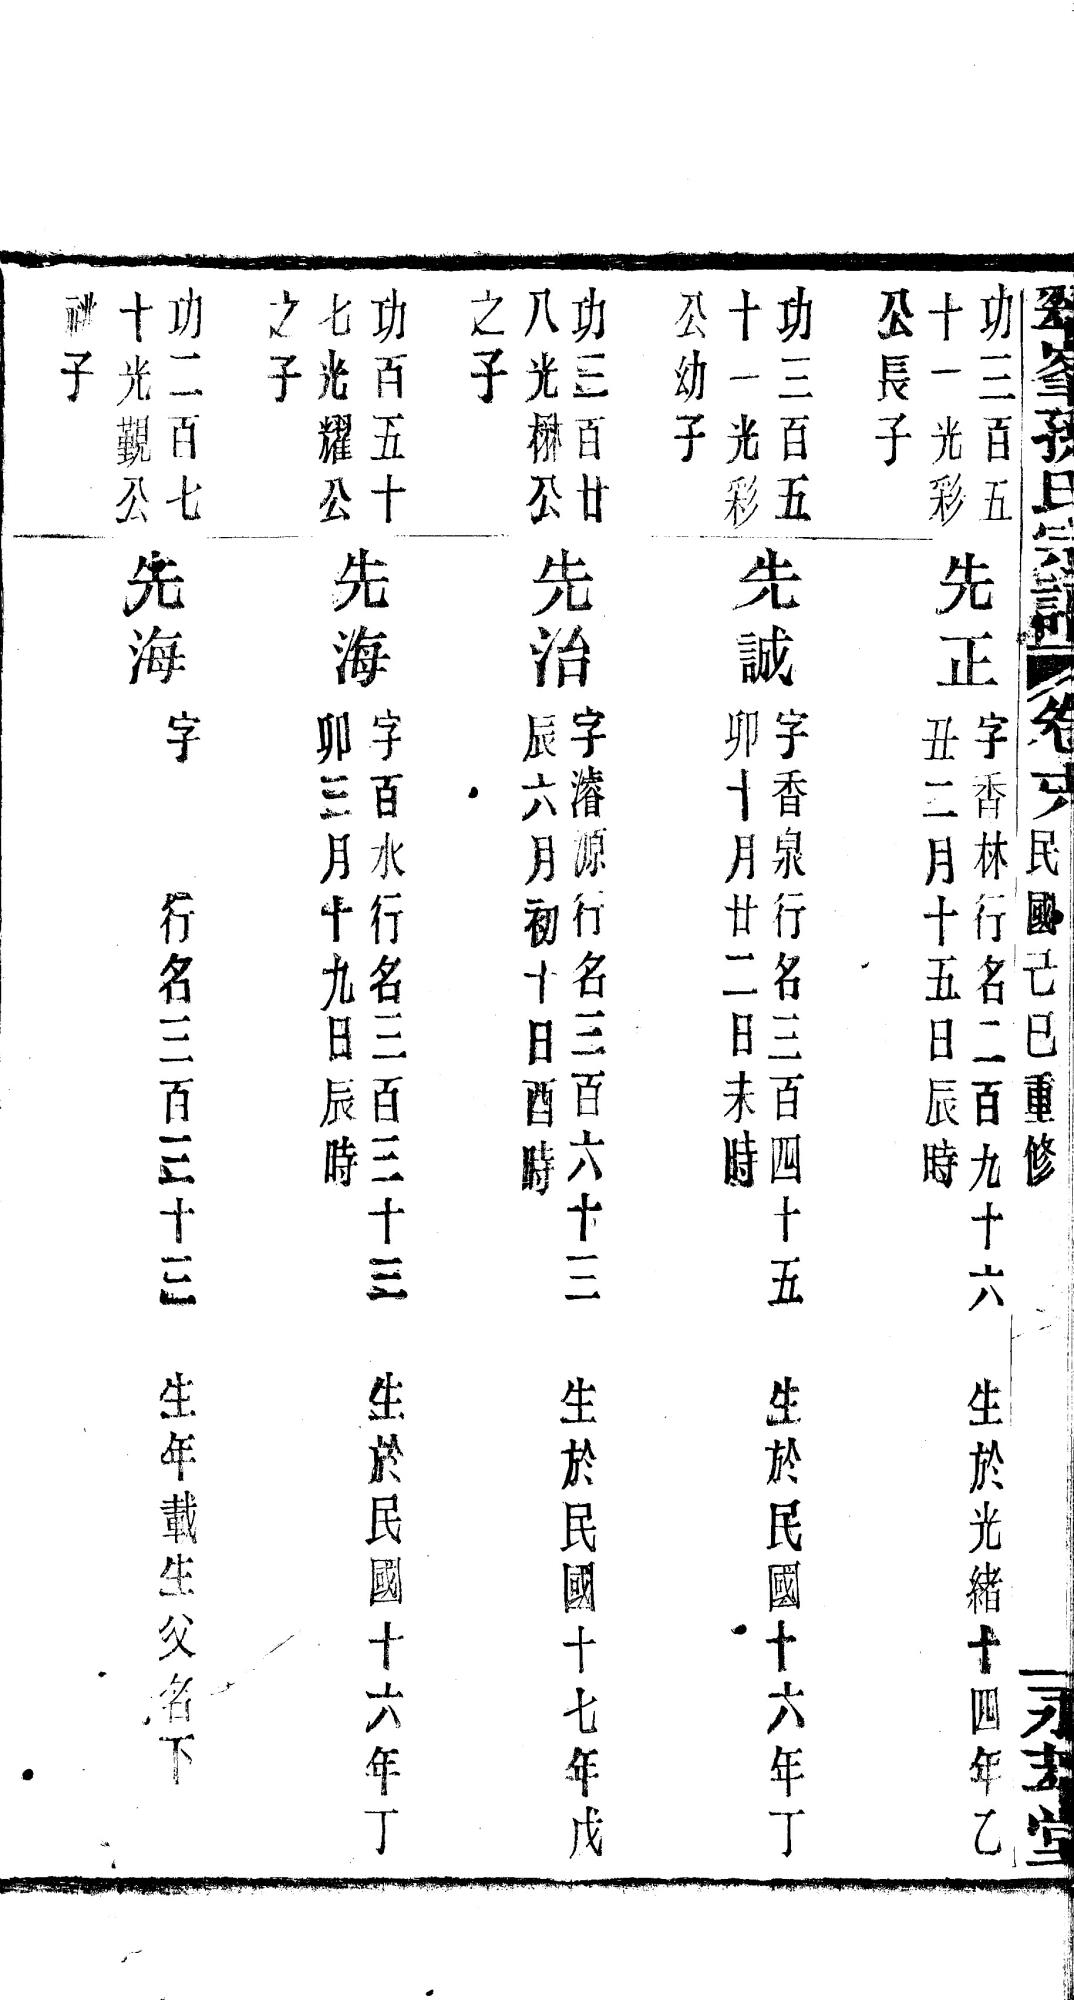 孫氏宗譜 卷 民國己巳重修 堂
功三百五
十一光彩
公長子
先正
字香林行名二百九十六 生於光緒十四年乙
丑二月十五日辰時
功三百五
十一光彩
公幼子
先誠
字香泉行名三百四十五 生於民國十六年丁
卯十月廿二日未時
功三百廿
八光楙公
之子
先治
字濬源行名三百六十三 生於民國十七年戊
辰六月初十日酉時
功百五十
七光耀公
之子
先海
字百水行名三百三十三 生於民國十六年丁
卯三月十九日辰時
功二百七
十光觐公
子
先海
字 行名三百三十三 生年載生父名下